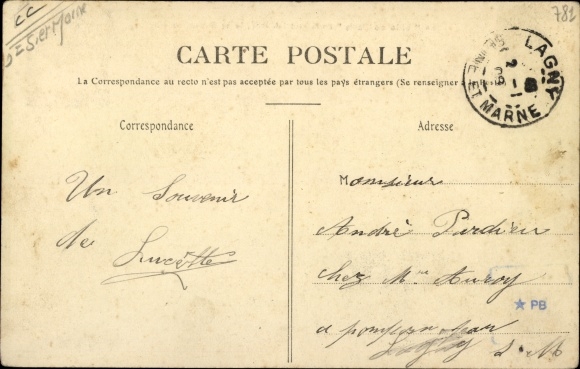 CC
781
CARTE POSTALE
La Correspondance au recto n'est pas acceptée par tous les pays étrangers (Se renseigner à
LAGNY
SEINE ET MARNE
Correspondance
Adresse
Un Souvenir
de
Lucette
Monsieur
André Perdieu
chez Mme Auroy
a pomponne
Lagny S. M
★ PB